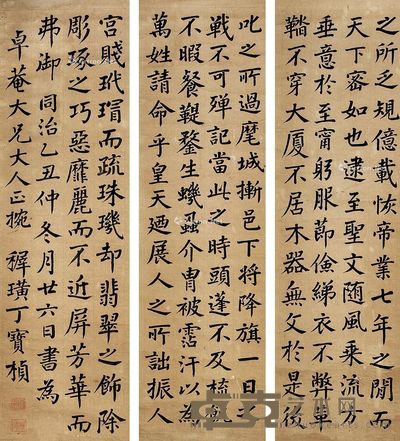 之所乏規億載恢帝業七年之閒而
天下密如也逮至聖文随風乘流方
垂意於至甯躬服節儉綈衣不弊革
鞜不穿大厦不居木器無文於是後
叱之所過麾城摲邑下將降旗一日之
戰不可殫記當此之時頭蓬不及梳飢
不暇餐鞮鍪生蟣蝨介冑被霑汗以為
萬姓請命乎皇天廼展人之所詘振人
宮賤玳瑁而疏珠璣却翡翠之飾除
彫琢之巧惡靡麗而不近屏芳華而
弗御同治乙丑仲冬月廿六日書為
卓菴大兄大人正捥 穉璜丁寶楨